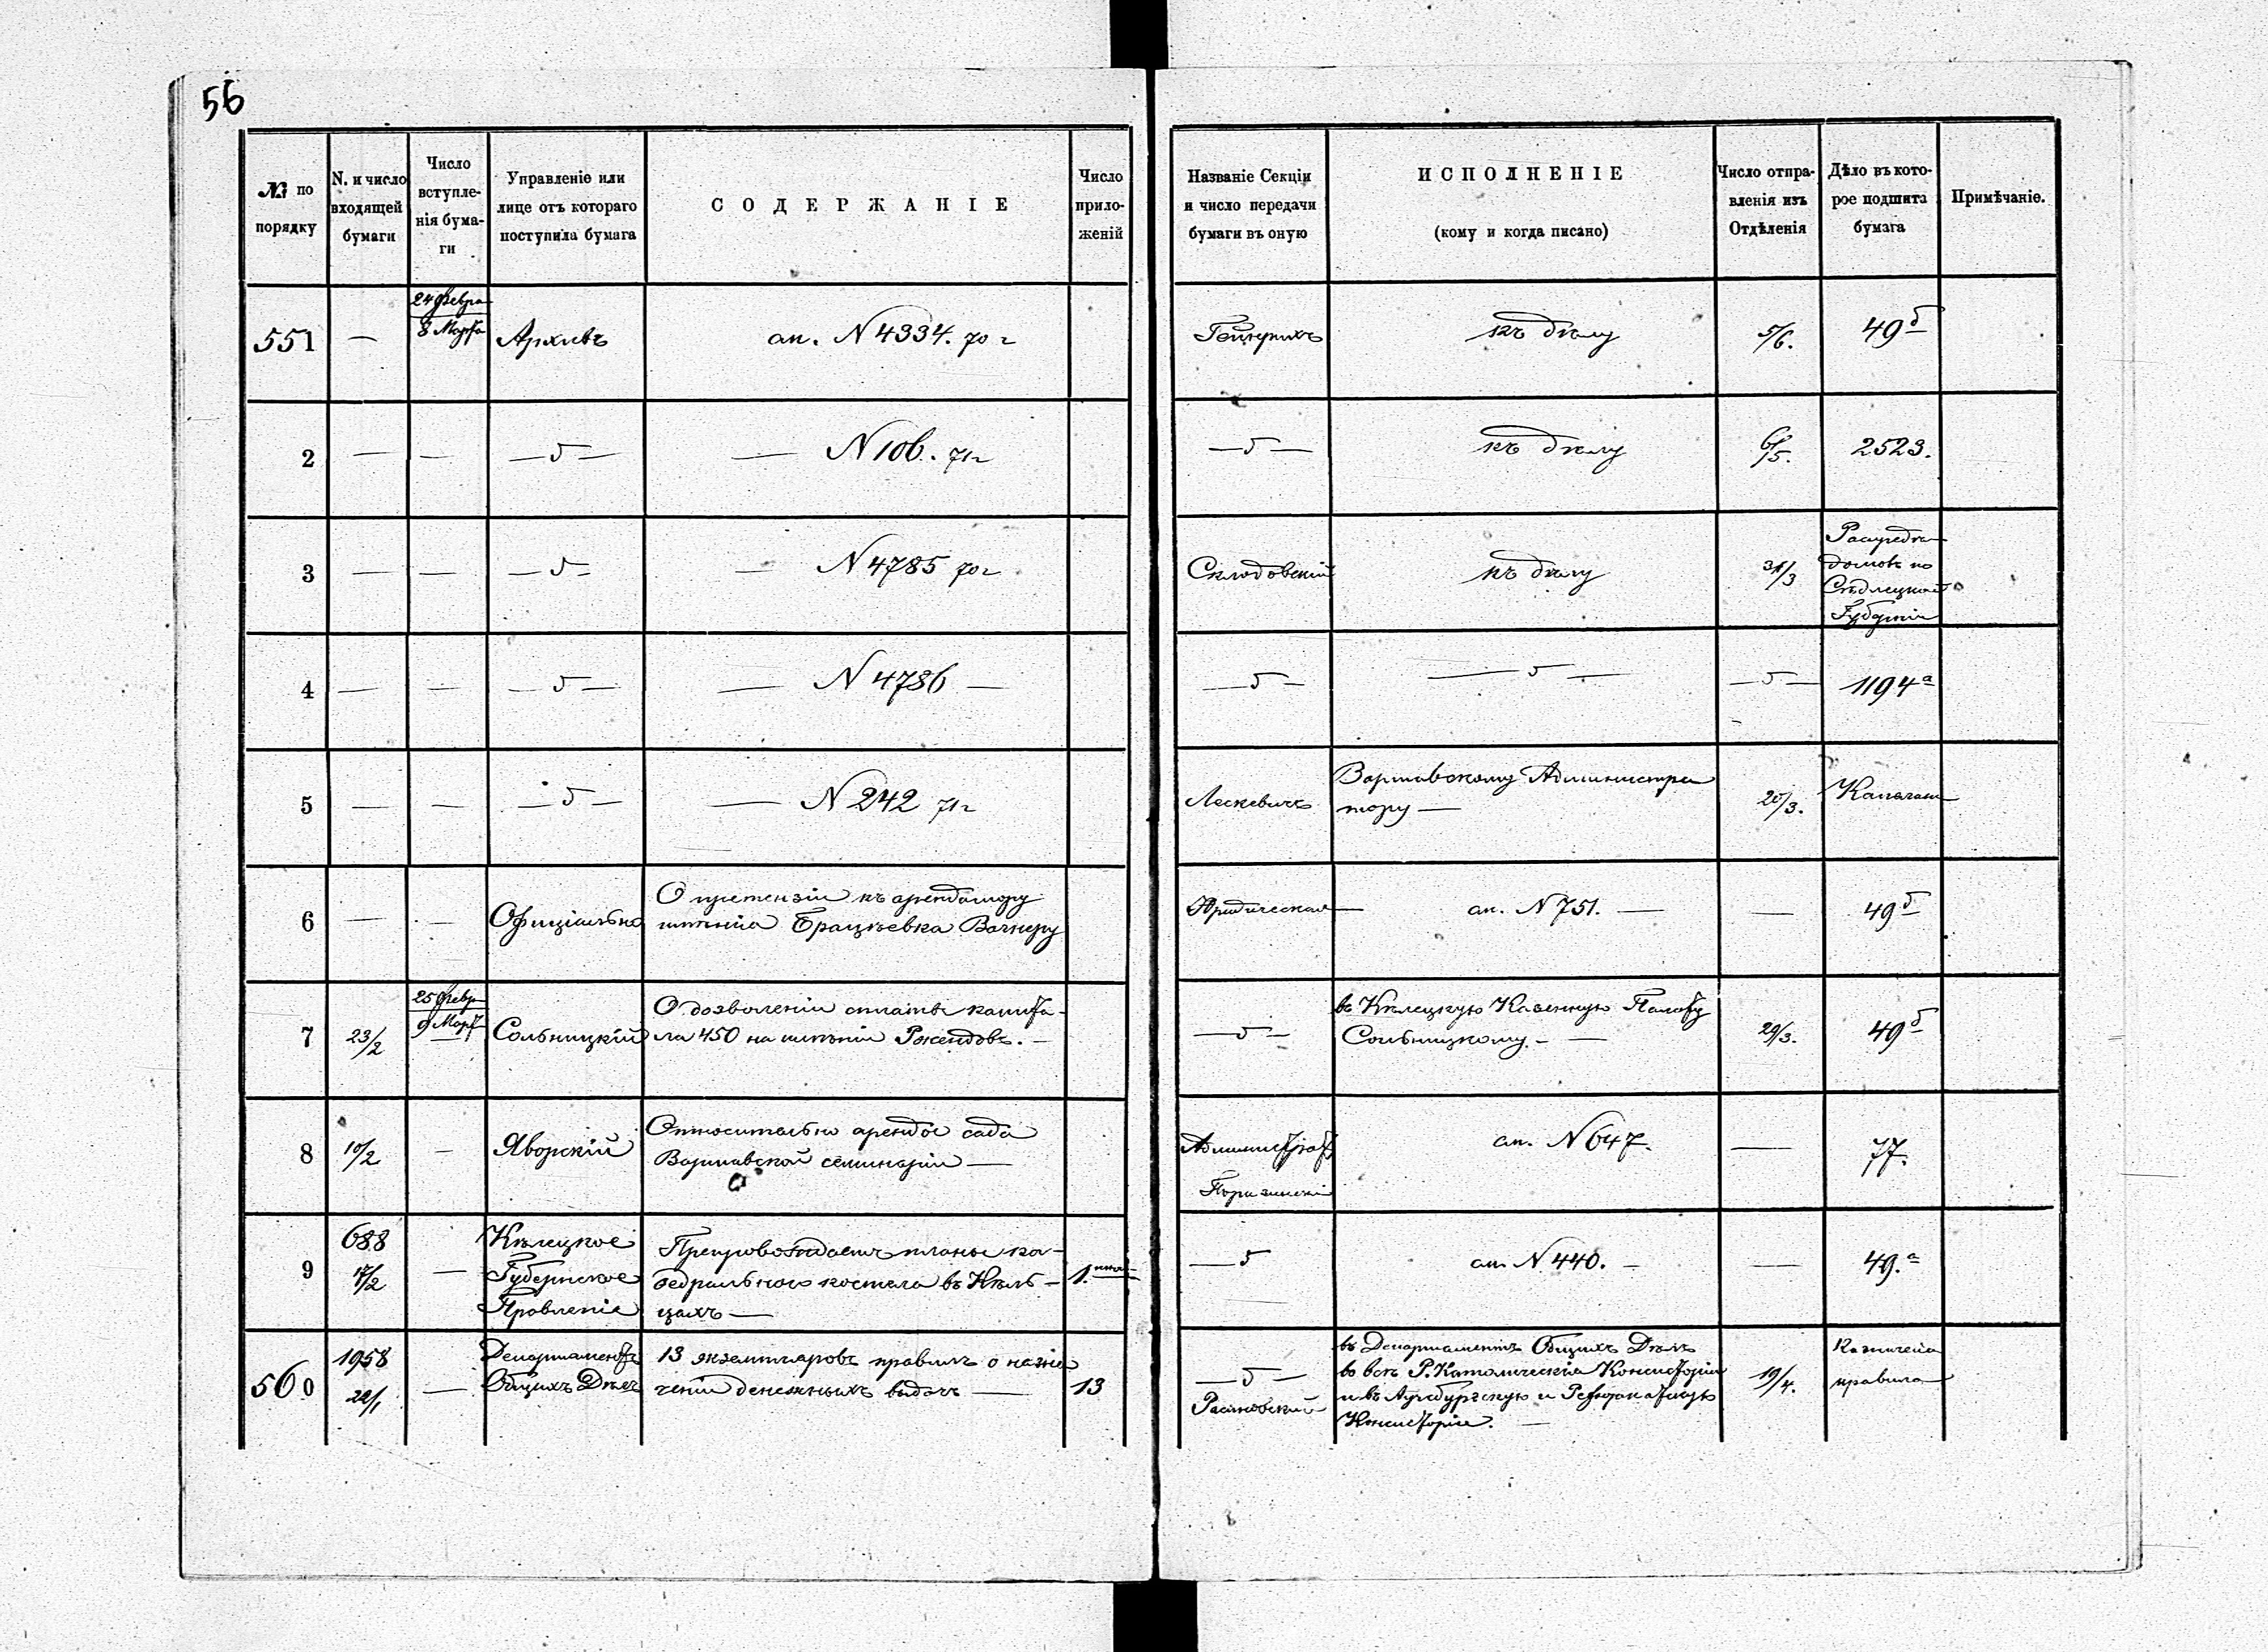 56
№ по порядку
N. и число входящей бумаги
Число вступле-
нія бума-
ги
Управленіе или
лице отъ котораго
поступила бумага
СОДЕРЖАНІЕ
Число
прило-
женій
Названіе Секціи
и число передачи
бумаги въ оную
ИСПОЛНЕНІЕ
(кому и когда писано)
Число отпра-
вленія изъ
Отдѣленія
Дѣло въ кото-
рое подшита
бумага
Примѣчаніе.
551 — 24 Февра 8 Марта Архивъ ан. N 4334. 70 г Гейнрихъ къ дѣлу 5/6. 49 б
2 — — — 5 — — N 106. 71 г — 5 — къ дѣлу 6/5. 2523.
3 — — — 5 — — N 4785 70 г Склодовскій къ дѣлу 31/3
домовъ по
Сѣдлецкой
Губерніи
4 — — — 5 — — N 4786 — — 5 — — 5 — — 5 — 1194 а
5 — — — 5 — — N 242 71 г Лескевичъ
Варшавскому Администра
тору — 20/3.
6 — — Офиціально
О претензіи къ арендатору
имѣнія Брацѣевка Вагнеру
Юридическая — ан. N 751. — — 49 б
7 23/2 25 Февр 9 Март Сольницкій
О дозволеніи сплатѣ капита-
ла 450 на имѣніи Ржендовъ. —
— 5 —
въ Кѣлецкую Казенную Палату
Сольницкому. — — 29/3. 49 б
8 10/2 — Яворскій
Относительно аренды сада
Варшавской семинаріи —
Администрат
ан. N 647. — 77.
9 688
17/2 —
Кѣлецкое
Губернское
Правленіе
Препровождаетъ планы ка-
ѳедральнаго костела въ Кѣль-
цахъ —
1.
— 5 ан. N 440. — — 49. а
560 1958
22/1 —
Департаментъ
Общихъ Дѣлъ
13 экземпляровъ правилъ о назна
ченіи денежныхъ выдачъ —
13
— 5 —
въ Департаментъ Общихъ Дѣлъ
во всѣ Р. Католическія Консисторіи
и въ Аугсбургскую и Реформатскую
Консисторіи. —
19/4.
правила